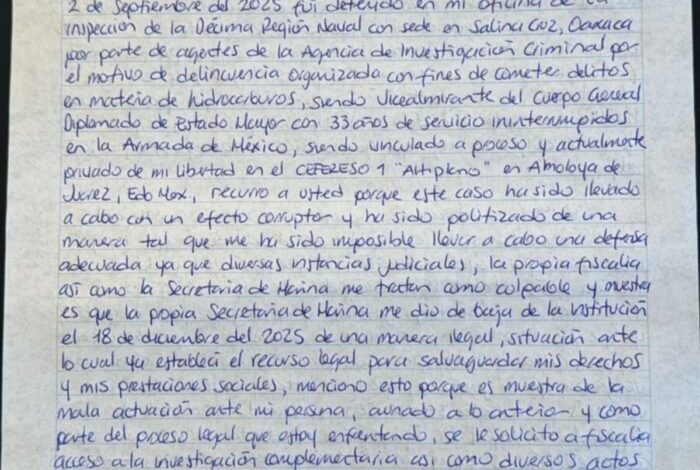 2 de Septiembre del 2025 fui detenido en mi oficina de la
inspección de la Décima Región Naval con sede en Salina Cruz, Oaxaca
por parte de agentes de la Agencia de Investigación Criminal por
el motivo de delincuencia organizada con fines de cometer delitos
en materia de hidrocarburos, siendo Vicealmirante del Cuerpo General
Diplomado de Estado Mayor con 33 años de servicio ininterrumpidos
en la Armada de México, siendo vinculado a proceso y actualmente
privado de mi libertad en el CEFERESO 1 "Altiplano" en Almoloya de
Juárez, Edo Mex., recurro a usted porque este caso ha sido llevado
a cabo con un efecto corruptor y ha sido politizado de una
manera tal que me ha sido imposible llevar a cabo una defensa
adecuada ya que diversas instancias judiciales, la propia fiscalia
así como la Secretaria de Marina me tratan como culpable y muestra
es que la popia Secretaria de Marina me dio de baja de la institución
el 18 de diciembre del 2025 de una manera ilegal, situación ante
lo cual ya establecí el recurso legal para salvaguardar mis derechos
y mis prestaciones sociales, menciono esto porque es muestra de la
mala actuación ante mi persona, aunado a lo anterior y como
parte del proceso legal que estoy enfrentando, se le solicito a fiscalia
acceso a la investigación complementaria así como diversos actos